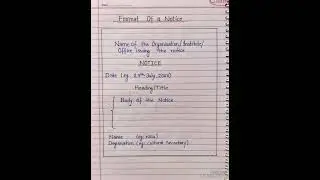 Format Of a Notice
Name of the Organisation/Institute/
Office Issuing the notice
NOTICE
Date (eg.
Heading/Title
Body of the Notice
Name (eg.
Designation (eg. Cultural Secretary)